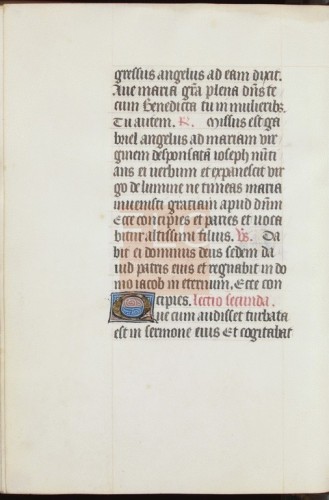 gressus angelus ad eam dixit.
Ave maria gr̃a plena dñs te
cum Benedicta tu in mulieribs.
Tu autem. R. Missus est ga
briel angelus ad mariam vir
ginem desponsatã ioseph nũti
ans ei verbum et expanescit vir
go de lumine ne timeas maria
invenisti graciam apud dñm
Ecce concipies et paries et voca
bitur altissimi filius. Vs. Da
bit ei dominus deus sedem da
uid patris eius et regnabit in do
mo iacob in eternum. Ecce con
cipies. lectio secunda.
Que cum audisset turbata
est in sermone eius Et cogitabat